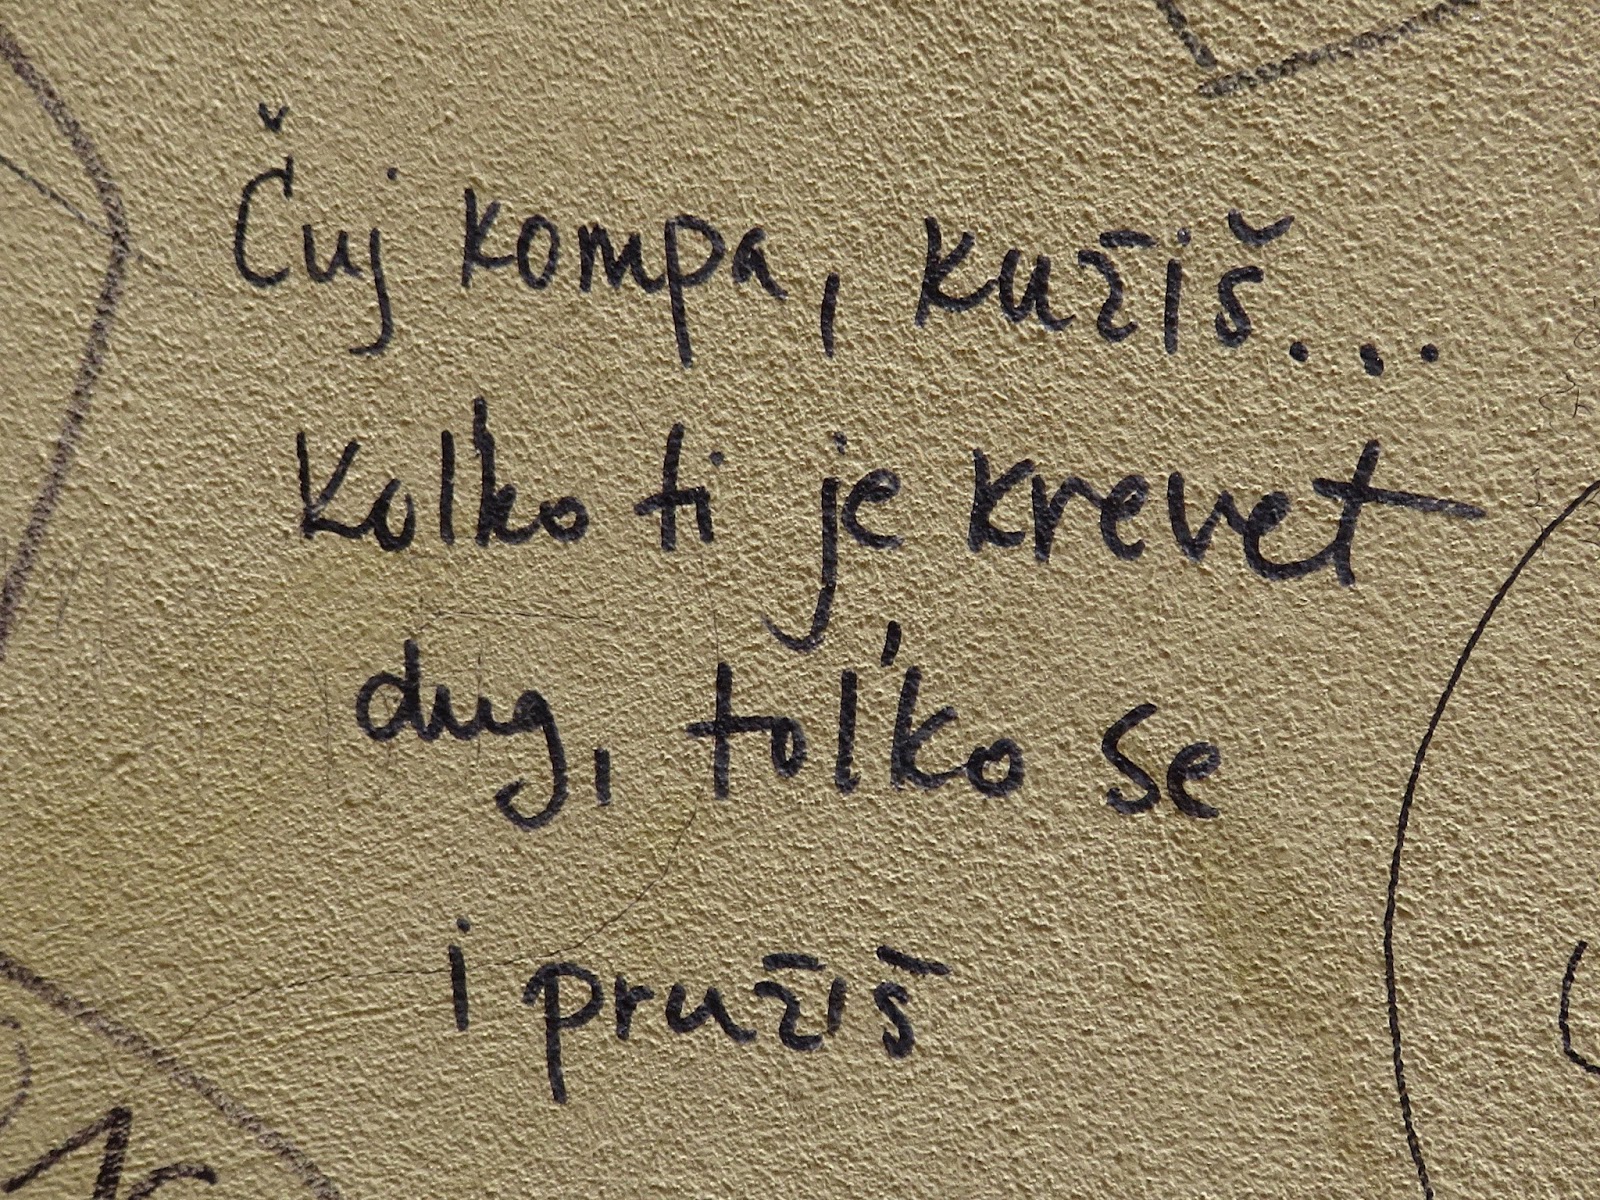 Čuj kompa, kužiš...
Kolko ti je krevet
dug, tol'ko se
i pružiš